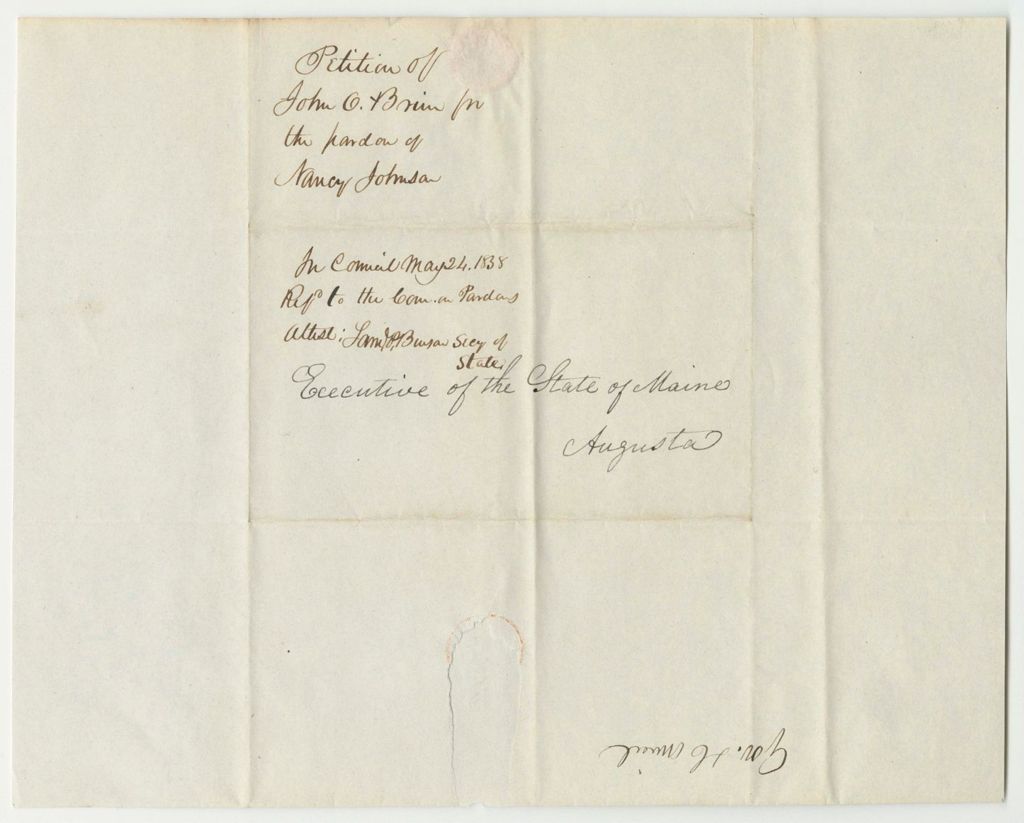 Petition of
John O. Brien for
the pardon of
Nancy Johnson
In Council May 24. 1838
Refd to the Com. on Pardons
Attest: Saml P. Benson Secy of
State
Executive of the State of Maine
Augusta
Gov. & Council